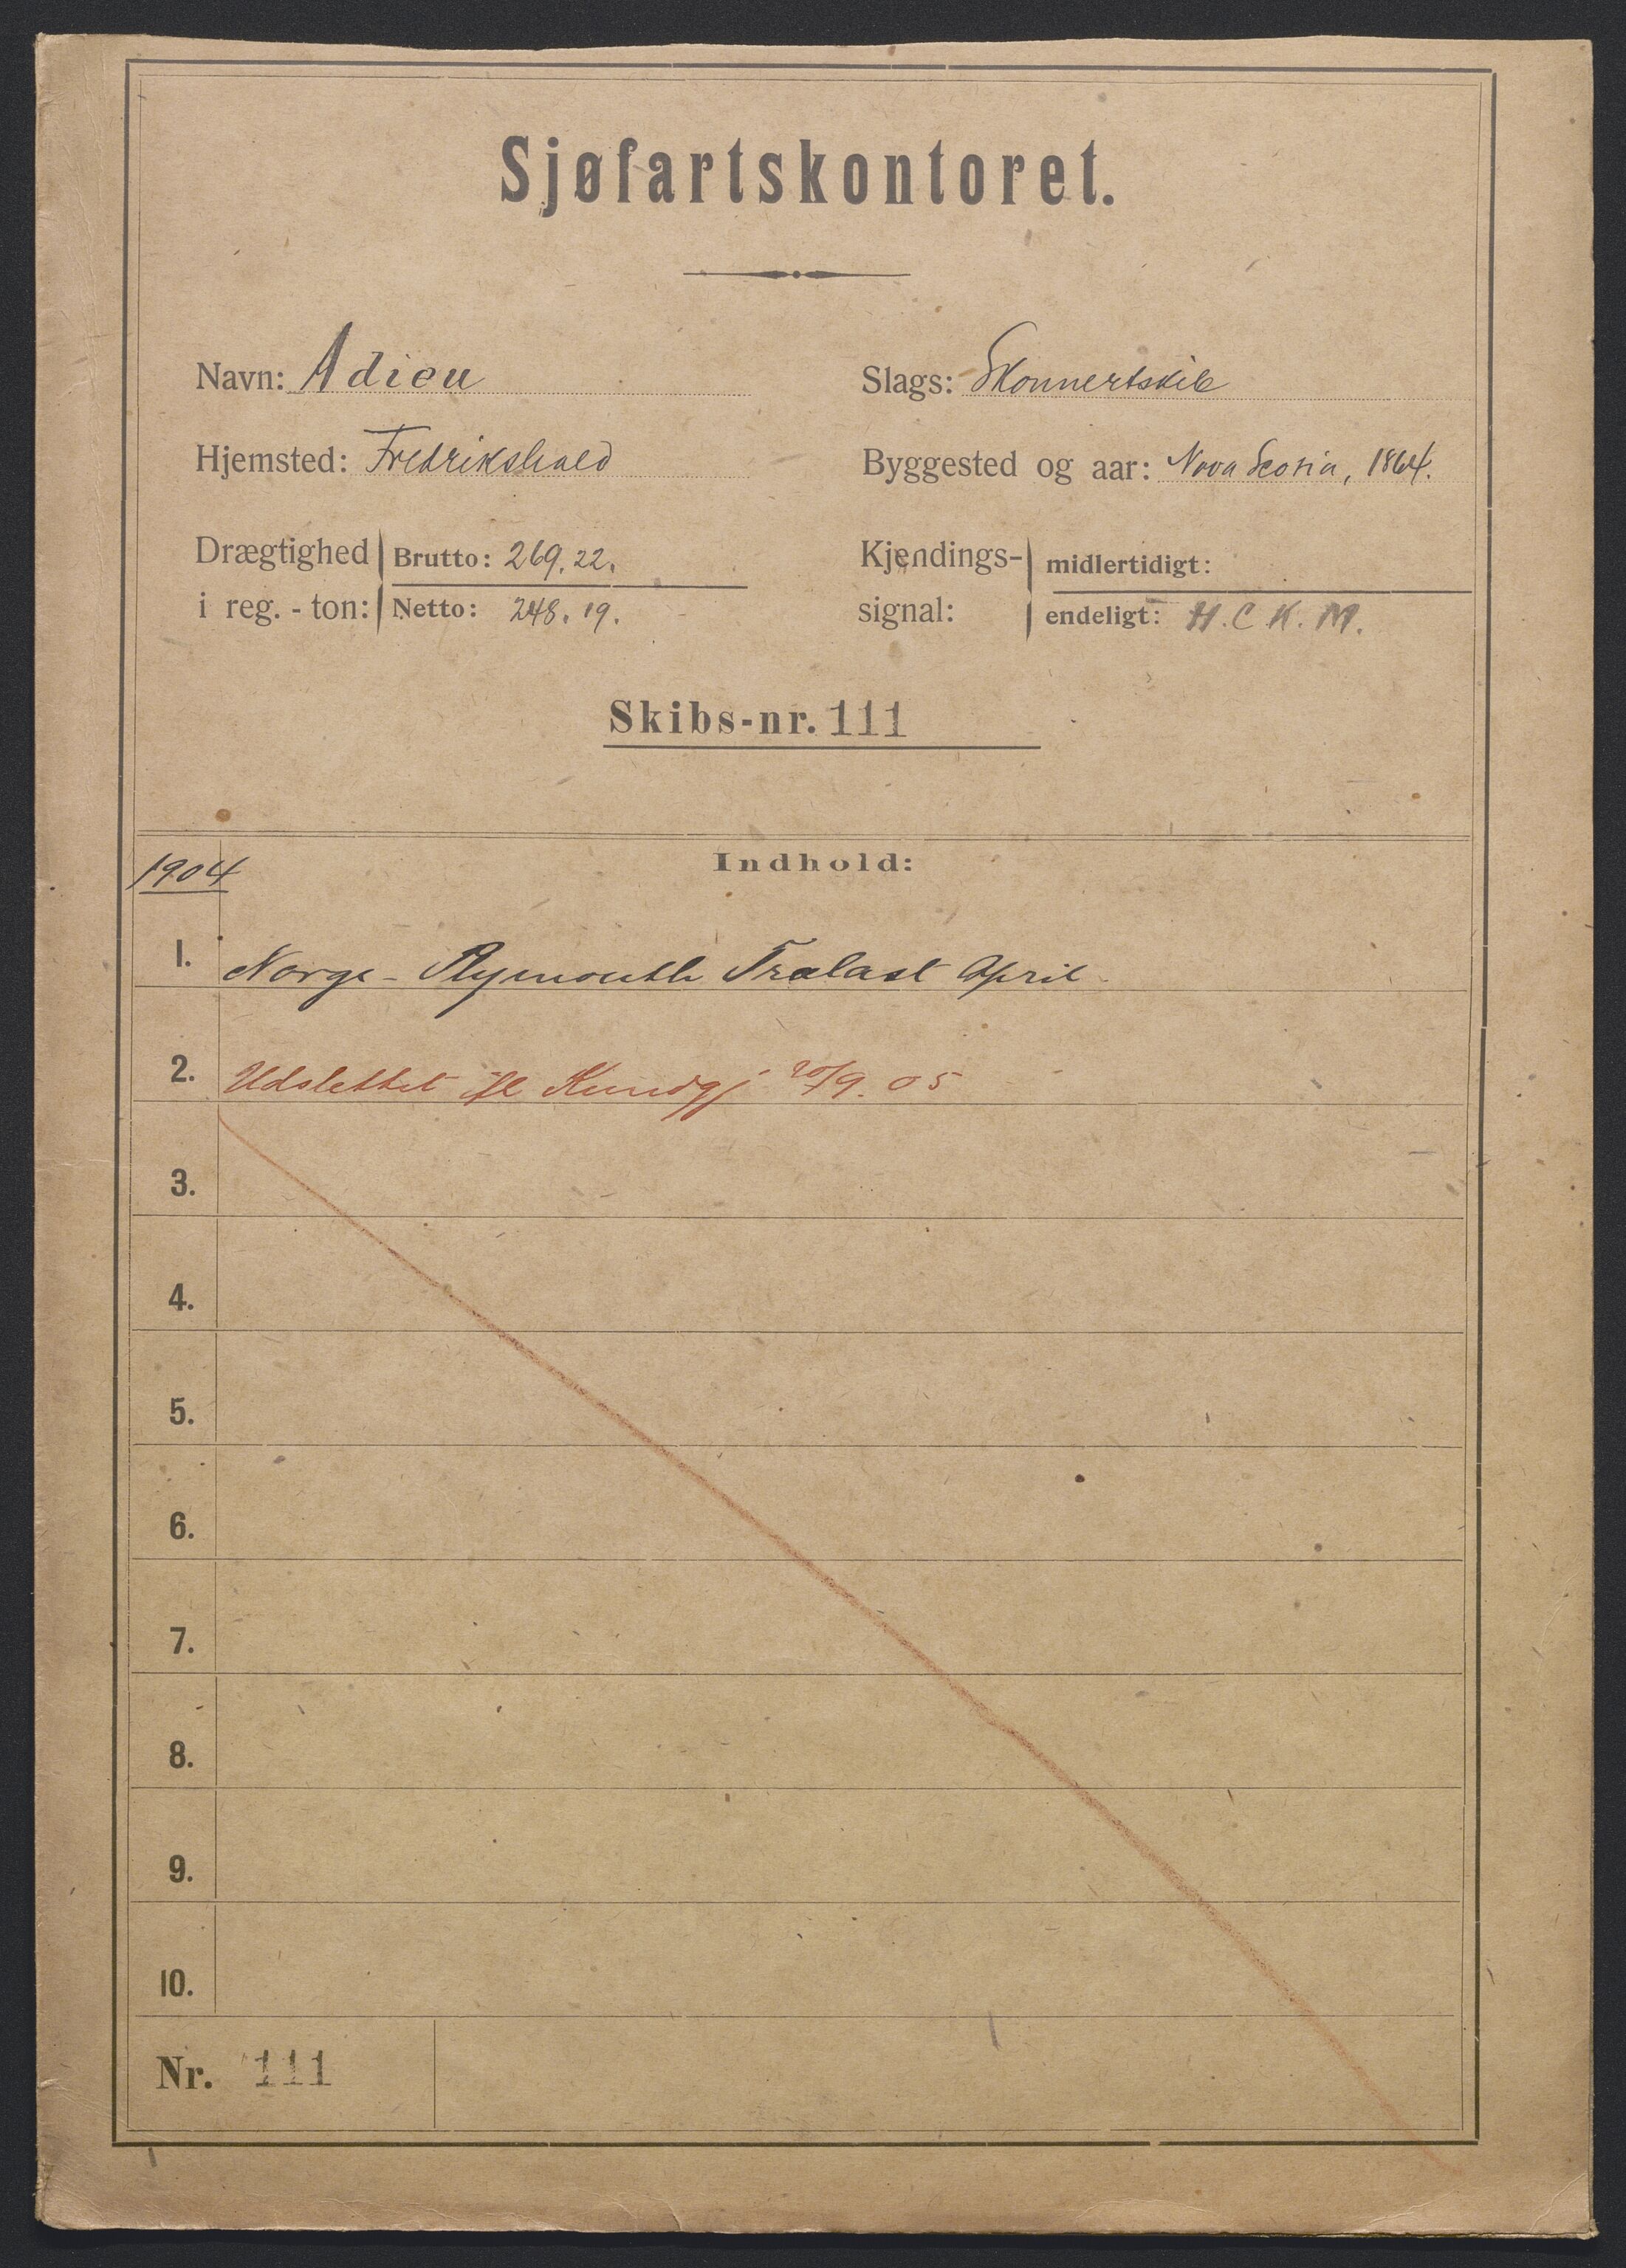 Sjøfartskontoret.
Navn: Adieu
Slags: Skonnertskib
Hjemsted: Fredrikshald
Byggested og aar: Nova Scotia, 1864.
Drægtighed i reg.-ton: Brutto: 269.22.
Netto: 248.19.
Kjendings-signal: midlertidigt:
endeligt: H.C.K.M.
Skibs-nr. 111
1904
Indhold:
1. Norge - Plymouth Trælast April
2. Udslettet ifl Kundgj 20/9. 05
3.
4.
5.
6.
7.
8.
9.
10.
Nr. 111